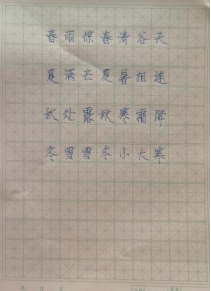 春雨惊春清谷天
夏满芒夏暑相连
秋处露秋寒霜降
冬雪雪冬小大寒